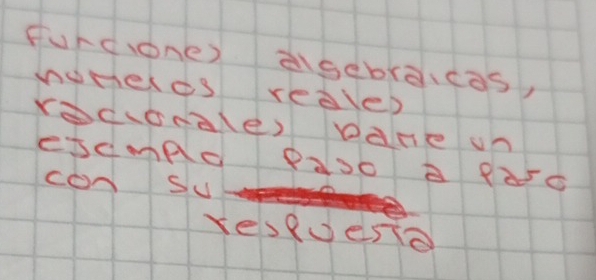 funciones algebraicas,
números reales
racionales dame un
ejemplo paso a paso
con su
respuesta